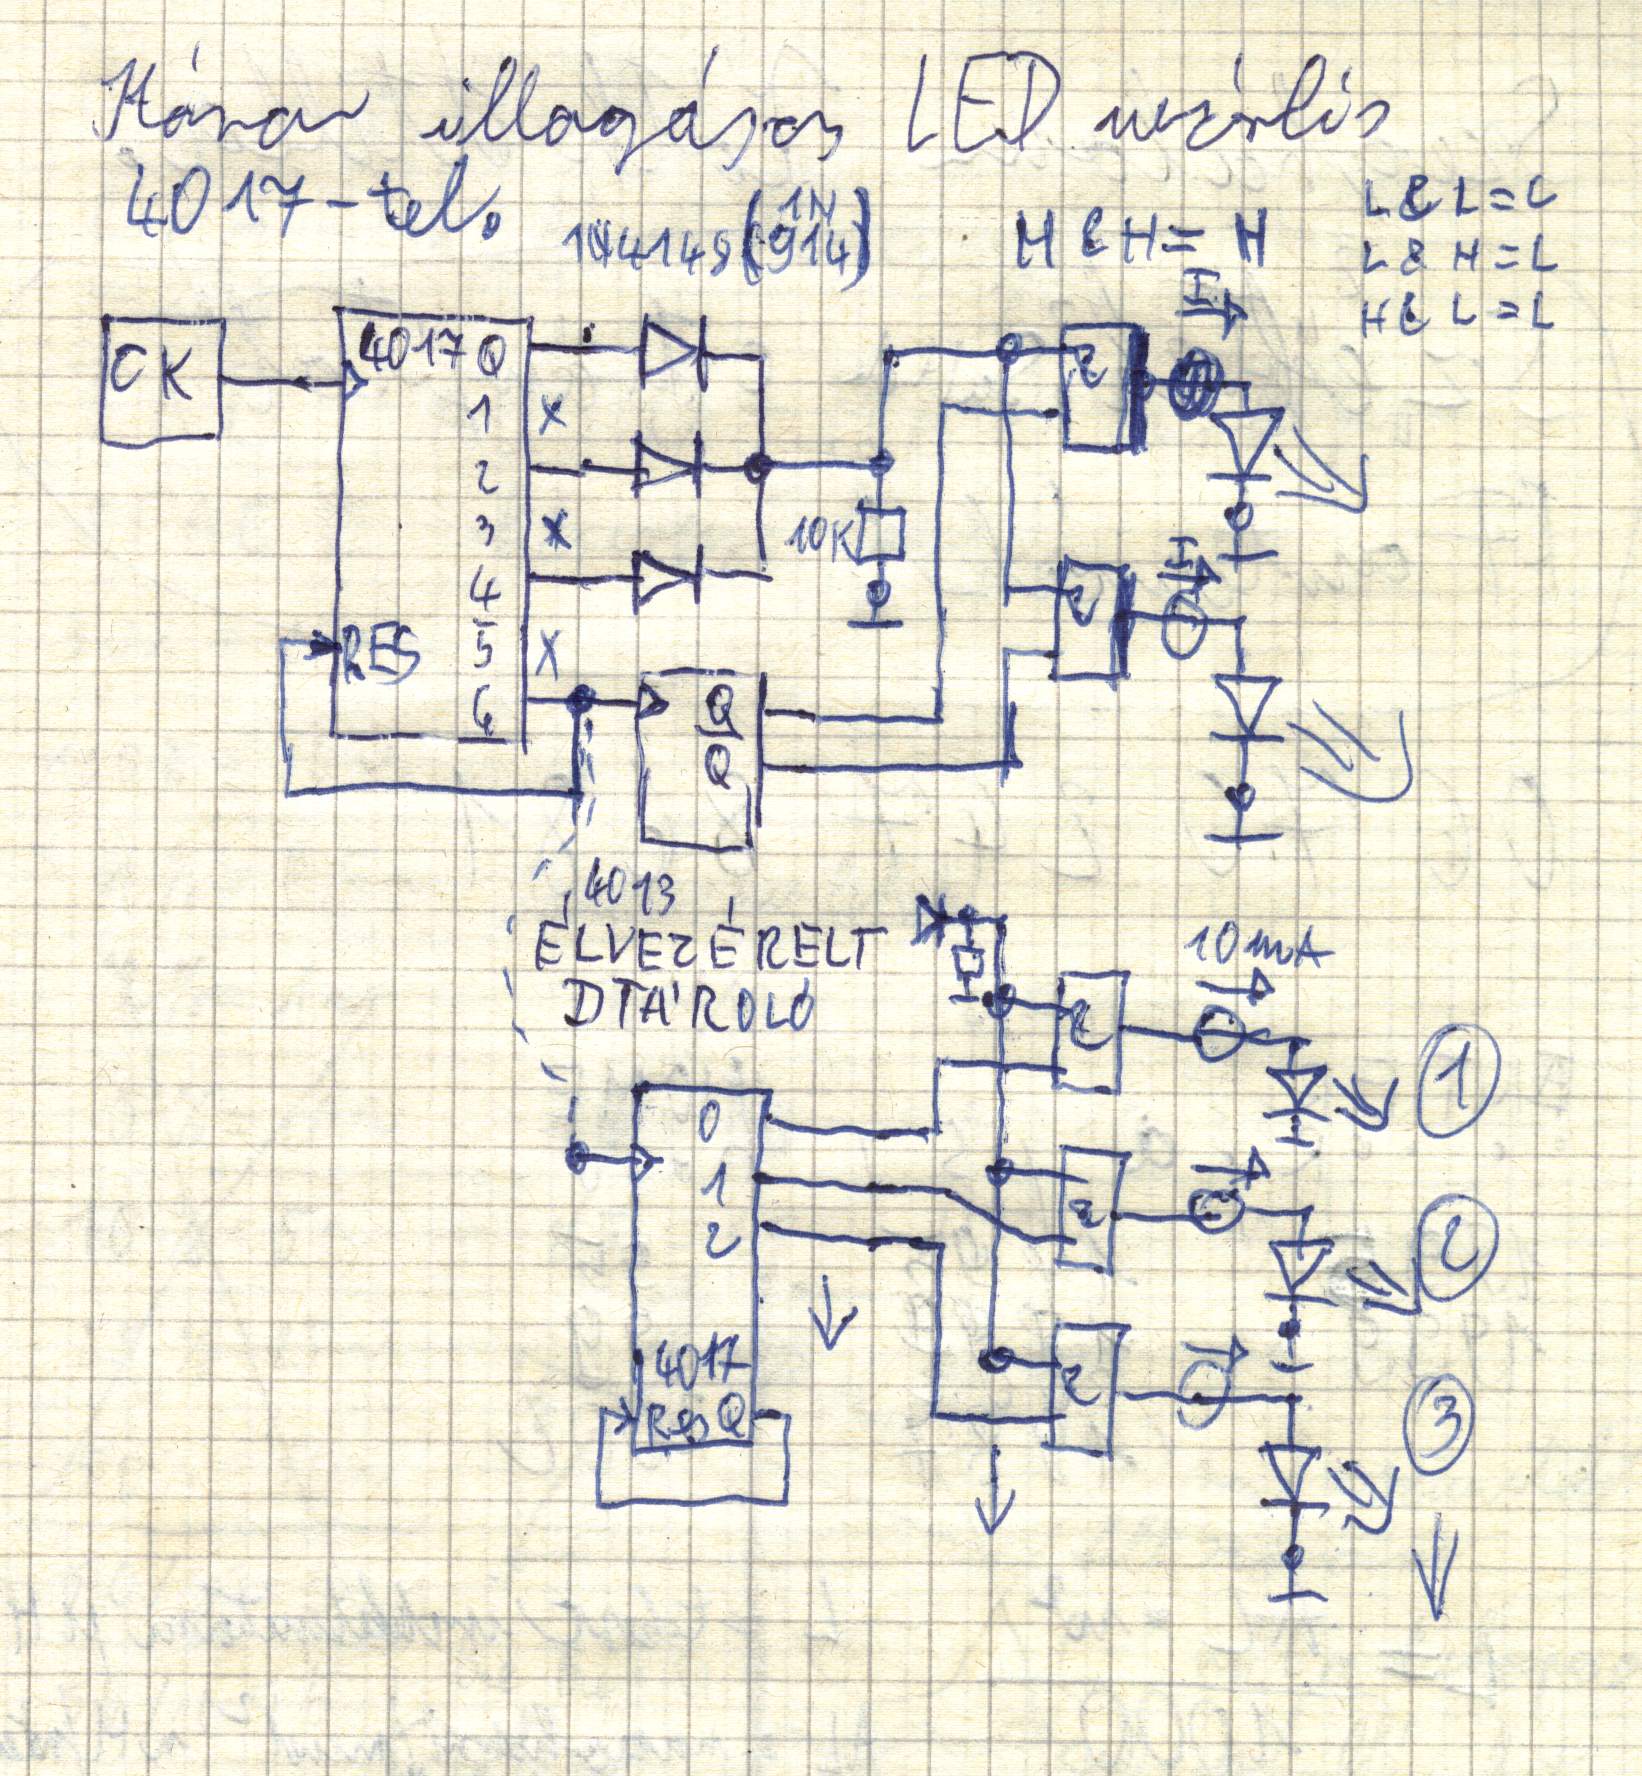 Három villogásos LED vezérlés
4017-tel.
1N4148 (1N914)
H & H = H
L & L = L
L & H = L
H & L = L
CK
4017
0
1 X
2
3 X
4
5 X
6
RES
10K
&
I
&
I
Q
Q̅
4013
ÉLVEZÉRELT
D TÁROLÓ
10mA
&
1
0
1
2
&
2
4017
Res Q
&
3